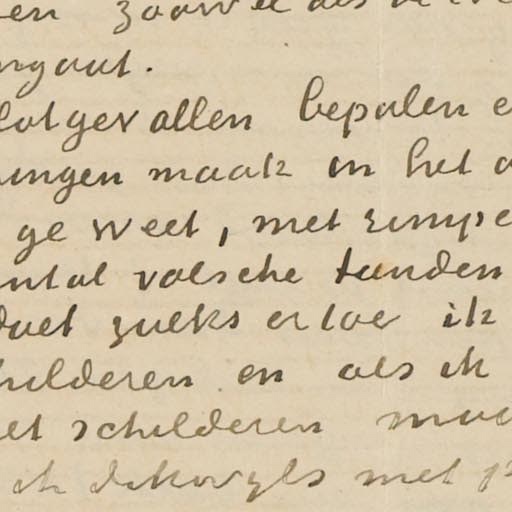 en zoowel als de
ngaat.
lotgevallen bepalen e
ningen maak in het o
ge weet, met rimpe
ntal valsche tanden
doet zulks er toe ik
hilderen en als ik
et schilderen moe
ik dikwyls met p